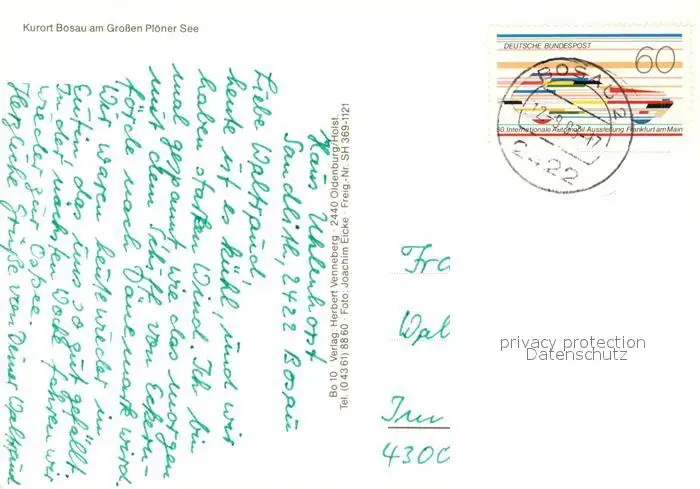 Kurort Bosau am Großen Plöner See
DEUTSCHE BUNDESPOST
60
50. Internationale Automobil-Ausstellung Frankfurt am Main
BOSAU 2
12.-9.83-17
2422
Haus Uhlenhorst
2422 Bosau
Liebe Waltraud,
heute ist es kühl, und wir
haben starken Wind. Ich bin
mal gespannt, wie das morgen
mit dem Schiff von Eckern-
förde nach Dänemark wird.
Wir waren heute wieder in
Eutin, das uns so gut gefällt.
In der nächsten Woche fahren wir
wieder zur Ostsee.
Herzliche Grüße von Deiner Waltraud
Bo 10 Verlag: Herbert Venneberg · 2440 Oldenburg/Holst.
Tel. (0 43 61) 88 60 · Foto: Joachim Eicke · Freig.-Nr. SH 369-1121
Fra
Wal
Im
4300
privacy protection
Datenschutz